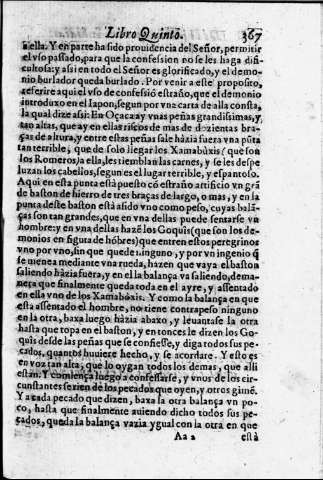 Libro Quinto. 367
a ella. Y en parte ha sido prouidencia del Señor, permitir
el vso passado, para que la confession no se les haga difi-
cultosa: y assi en todo el Señor es glorificado, y el demo-
nio burlador queda burlado. Por venir a este proposito,
referire aqui el vso de confessiō estraño, que el demonio
introduxo en el Iapon, segun por vna carta de alla consta,
la qual dize assi: En Ozaca ay vnas peñas grandissimas, y
tan altas, que ay en ellas riscos de mas de dozientas bra-
ças de altura, y entre estas peñas sale hàzia fuera vna pūta
tan terrible, que de solo llegar los Xamabùxis (que son
los Romeros) a ella, les tiemblan las carnes, y se les despe
luzan los cabellos, segun es el lugar terrible, y espantoso.
Aqui en esta punta està puesto cō estraño artificio vn grā
de baston de hierro de tres braças de largo, o mas, y en la
punta deste baston està asido vno como peso, cuyas balā-
ças son tan grandes, que en vna dellas puede sentarse vn
hombre: y en vna dellas hazē los Goquìs (que son los de-
monios en figura de hōbres) que entren estos peregrinos
vno por vno, sin que quede ninguno, y por vn ingenio q̄
se menea mediante vna rueda, hazen que vaya el baston
saliendo hàzia fuera, y en el la balança va saliendo, dema-
nera que finalmente queda toda en el ayre, y assentado
en ella vno de los Xamabùxis. Y como la balança en que
esta assentado el hombre, no tiene contrapeso ninguno
en la otra, baxa luego hàzia abaxo, y leuantase la otra
hasta que topa en el baston, y entonces le dizen los Go-
quìs desde las peñas que se confiesse, y diga todos sus pe-
cados, quantos huuiere hecho, y se acordare. Y esto es
en voz tan alta, que lo oygan todos los demas, que alli
estàn. Y comiença luego a confessarse, y vnos de los cir-
cunstantes se rien de los pecados que oyen, y otros gimē.
Y a cada pecado que dizen, baxa la otra balança vn po-
co, hasta que finalmente auiendo dicho todos sus pe-
cados, queda la balança vazia ygual con la otra en que
Aa 2 està